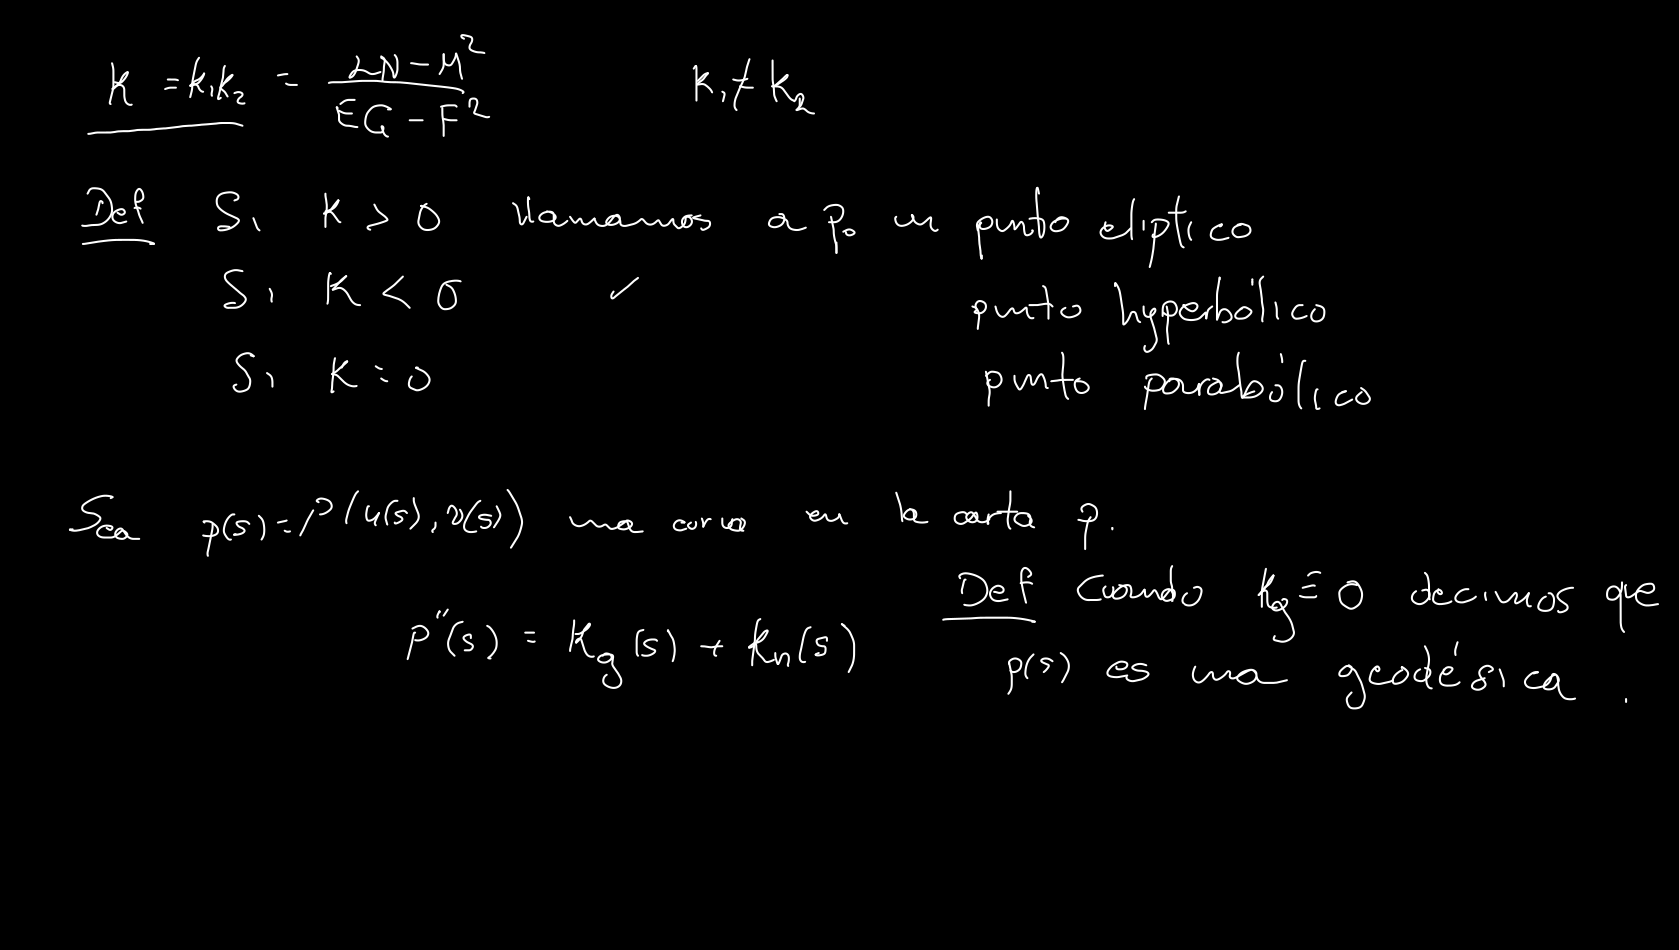 K = k₁k₂ = (LN - M²)/(EG - F²) k₁ ≠ k₂
Def Si K > 0 llamamos a p₀ un punto elíptico
Si K < 0 ✓ punto hyperbólico
Si K = 0 punto parabólico
Sea p(s) = p(u(s), v(s)) una curva en la carta p.
Def Cuando kg ≡ 0 decimos que
p''(s) = kg(s) + kn(s) p(s) es una geodésica.